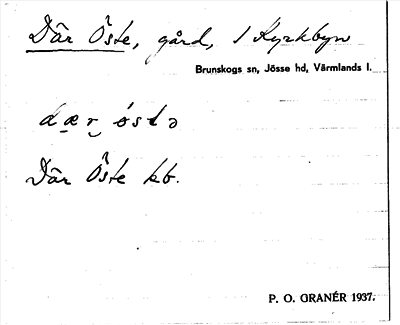 Där Öste, gård, 1 Kyrkbyn
Brunskogs sn, Jösse hd, Värmlands l.
dær östə
Där Öste kb.
P. O. GRANÉR 1937.